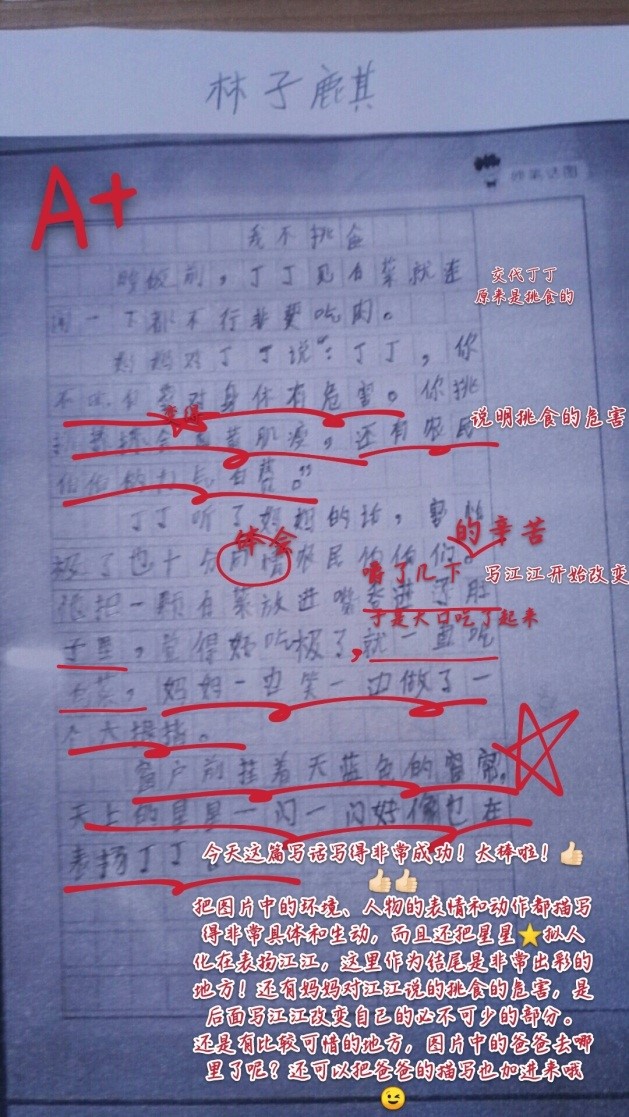 林子麒
A+
我不挑食
晚饭前,丁丁见白菜就连
闻一下都不行非要吃肉。
妈妈对丁丁说:“丁丁,你
不吃白菜对身体有危害。你挑
变得
还有农民
说明挑食的危害
伯伯的
交代丁丁
原来是挑食的
丁丁听了妈妈的话,害怕
体会
的辛苦
极了也十分同情农民伯伯们。
嚼了几下
写江江开始改变
他把一颗白菜放进嘴
于是大口吃了起来
子里,觉得好吃极了,就一直吃
白菜,妈妈一边笑一边做了一
个大拇指。
窗户前挂着天蓝色的窗帘,
天上的星星一闪一闪好像也在
表扬丁丁
今天这篇写话写得非常成功!太棒啦!👍🏻
👍🏻👍🏻
把图片中的环境、人物的表情和动作都描写
得非常具体和生动,而且还把星星⭐拟人
化在表扬江江,这里作为结尾是非常出彩的
地方!还有妈妈对江江说的挑食的危害,是
后面写江江改变自己的必不可少的部分。
还是有比较可惜的地方,图片中的爸爸去哪
里了呢?还可以把爸爸的描写也加进来哦
😉